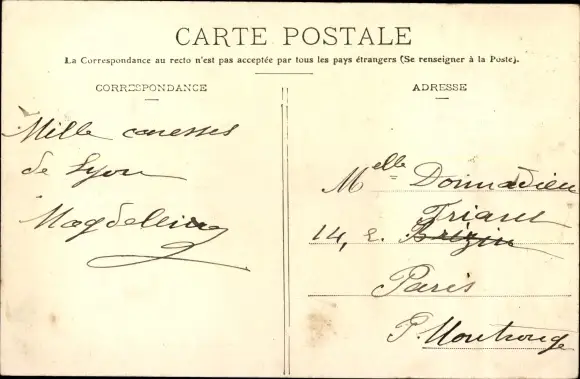 CARTE POSTALE
La Correspondance au recto n'est pas acceptée par tous les pays étrangers (Se renseigner à la Poste).
CORRESPONDANCE
Mille caresses
de Lyon
Magdeleine
ADRESSE
Melle Donnadieu
Friant
14, r. Brézin
Paris
P. Montrouge